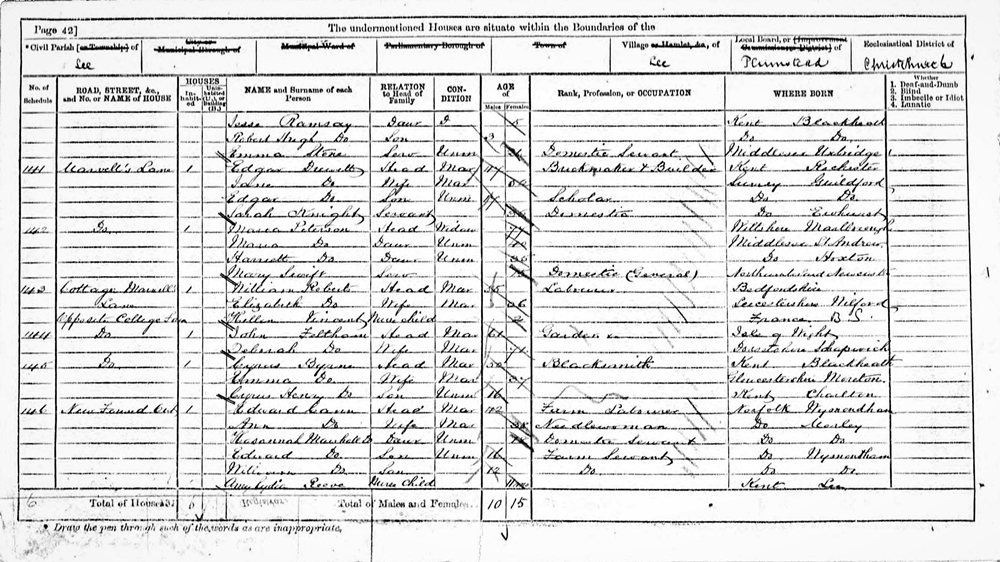 Page 42]
The undermentioned Houses are situate within the Boundaries of the
*Civil Parish [or Township] of
Lee
City or Municipal Borough of
Municipal Ward of
Parliamentary Borough of
Town of
Village or Hamlet, &c., of
Lee
Local Board, or (Improvement Commissioners District) of
Plumstead
Ecclesiastical District of
Christchurch
No. of Schedule
ROAD, STREET, &c., and No. or NAME of HOUSE
HOUSES
Inhabited
Uninhabited (U.), or Building (B.)
NAME and Surname of each Person
RELATION to Head of Family
CONDITION
AGE of
Males
Females
Rank, Profession, or OCCUPATION
WHERE BORN
Whether
1. Deaf-and-Dumb
2. Blind
3. Imbecile or Idiot
4. Lunatic
Jessie Ramsay Daur 5 Kent Blackheath
Robert Hugh Do Son 3 Do Do
Emma Stone Serv Unm Domestic Servant Middlesex Uxbridge
141 Marvell's Lane 1 Edgar Drewett Head Mar Brickmaker & Builder Kent Rochester
Jane Do Wife Mar Surrey Guildford
Edgar Do Son Unm Scholar Do Do
Sarah Knight Servant Domestic Do Ewhurst
142 Do 1 Maria Peterson Head Widow Wiltshire Marlborough
Maria Do Daur Unm Middlesex St. Andrew
Harriett Do Daur Unm Do Hoxton
Mary Swift Serv Domestic (General) Northumberland Newcastle
143 Cottage Marvell's 1 William Robert Head Mar Labourer Bedfordshire
Lane Elizabeth Do Wife Mar Leicestershire Wilford
Opposite College Farm Vincent Nurse child 2 France B S
144 Do 1 John Feltham Head Mar Gardener Isle of Wight
Deborah Do Wife Mar Dorsetshire Shapwick
145 Do 1 Cyrus Byrne Head Mar Blacksmith Kent Blackheath
Emma Do Wife Mar Gloucestershire Moreton
Cyrus Henry Do Son Unm 16 Kent Charlton
146 New Found Out 1 Edward Cann Head Mar 42 Farm Labourer Norfolk Wymondham
Ann Do Wife Mar Needlewoman Do Morley
Hosannah Marshall Do Daur Unm Domestic Servant Do Do
Edward Do Son Unm 16 Farm Servant Do Wymontham
William Do Son 12 Do. Do Do.
Amy Lydia Reeve Nurse Child Kent Lee
6 Total of Houses 6 Total of Males and Females 10 15
* Draw the pen through such of the words as are inappropriate.